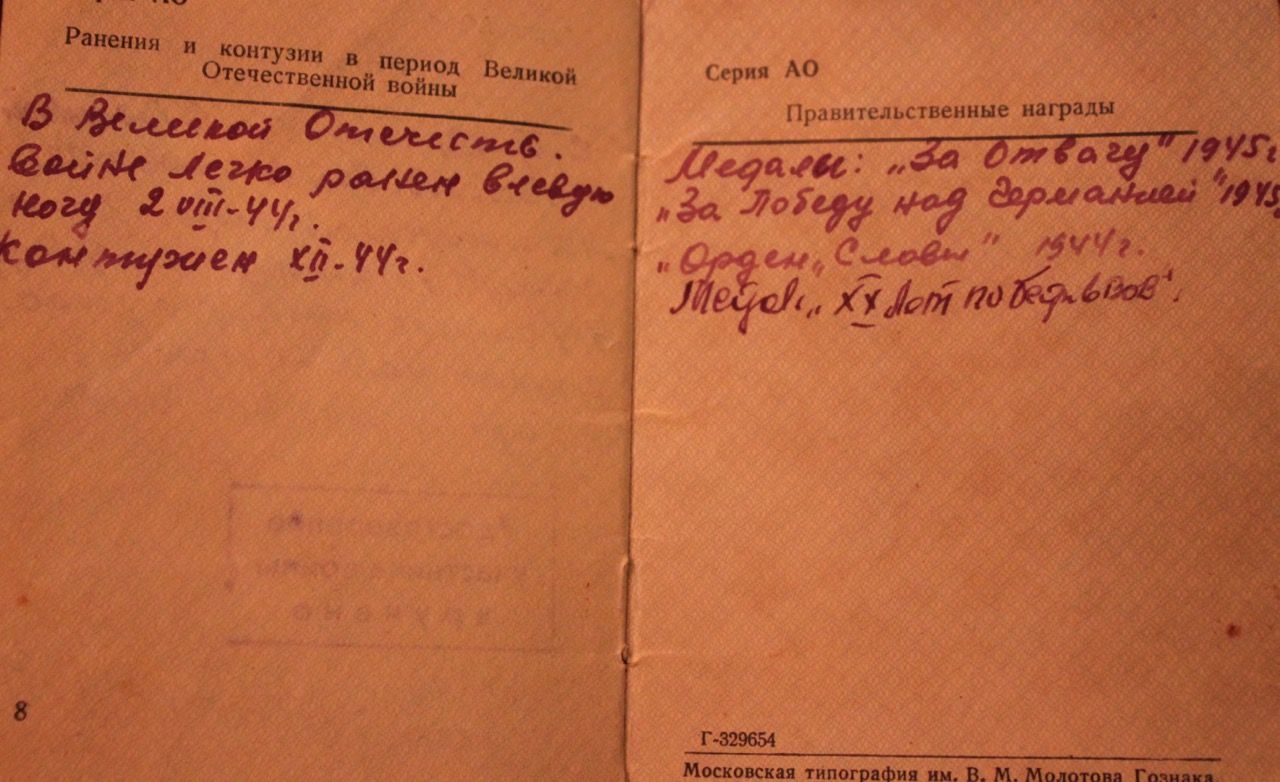 Ранения и контузии в период Великой
Отечественной войны
В Великой Отечеств.
войне легко ранен в левую
ногу 2 VIII-44г.
Контужен XII-44г.
8
Серия АО
Правительственные награды
Медалы: „За Отвагу" 1945г
„За Победу над Германией" 1945
„Орден „Славы" 1944г.
XX лет
Г-329654
Московская типография им. В. М. Молотова Гознака